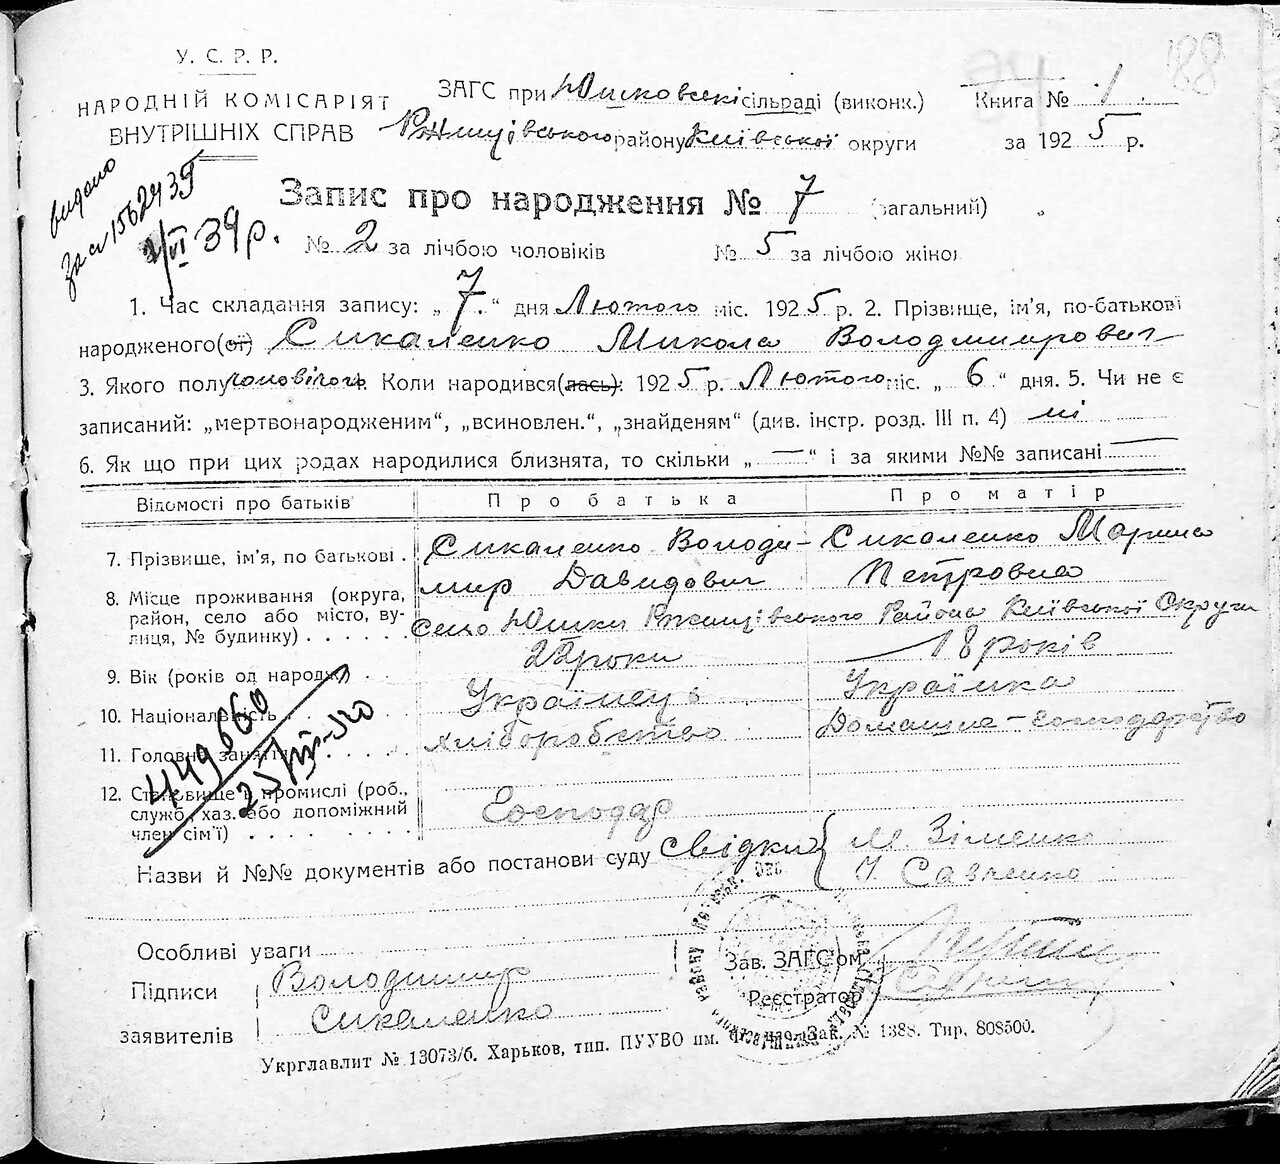 188
У. С. Р. Р.
НАРОДНІЙ КОМІСАРІЯТ
ВНУТРІШНІХ СПРАВ
ЗАГС при Юшковській сільраді (виконк.)
Ржищівського району Київської округи
Книга № 1.
за 1925 р.
видано
1562439
2/VI 39 р.
Запис про народження № 7 (загальний)
№ 2 за лічбою чоловіків № 5 за лічбою жіно
1. Час складання запису: „7.“ дня Лютого міс. 1925 р. 2. Прізвище, ім'я, по-батькові
народженого(ої) Сикаленко Микола Володимирович
3. Якого полу чоловічого. Коли народився(лась): 1925 р. Лютого міс. „6“ дня. 5. Чи не є
записаний: „мертвонародженим“, „всиновлен.“, „знайденям“ (див. інстр. розд. III п. 4) ні
6. Як що при цих родах народилися близнята, то скільки „—“ і за якими №№ записані —
Відомості про батьків Про батька Про матір
7. Прізвище, ім'я, по батькові . Сикаленко Володи- Сикаленко Марина
мир Давидович Петровна
8. Місце проживання (округа,
район, село або місто, ву-
лиця, № будинку) . . . . . . Село Юшки Ржищівського Района Київської Округи
9. Вік (років од народж.) . . 22 роки 18 років
10. Національність . . . Українець Українка
11. Головне заняття хліборобство Домашне-господарство
12. Становище в промислі (роб.,
служб., хаз. або допоміжний
член сім'ї) . . . . . . . . Господар
449660
25/III-40
Назви й №№ документів або постанови суду свідки { М. Зіменко
Савченко
Особливі уваги
Підписи Володимир
заявителів Сикаленко
Зав. ЗАГС'ом
Реєстратор
Укрглавлит № 13073/б. Харьков, тип. ПУУВО им. Фрунзе. Зак. № 1388. Тир. 808500.